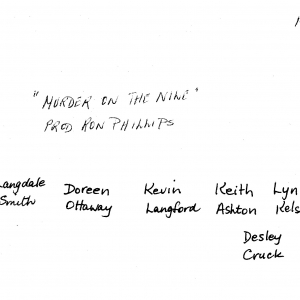 "MURDER ON THE NILE"
PROD RON PHILLIPS
Langdale Doreen Kevin Keith Lyn
Smith Ottaway Langford Ashton Kels
Desley
Cruck